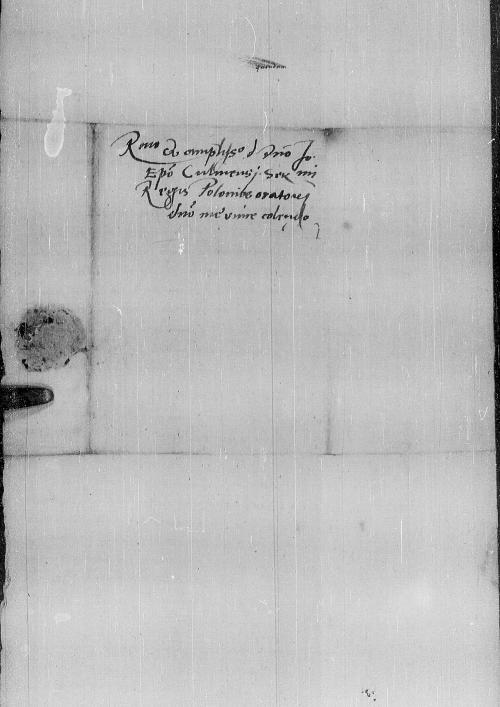 Reuo & ampliss° d dno Jo.
Epo Culmensi. Ser mi
Regis Poloniae oratori
dno meo unice colendo